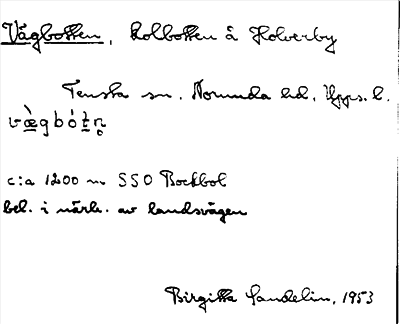 Vägbotten, kolbotten å Holverby
Tensta sn. Norunda hd. Upps. l.
væ̀gbót̠n̥
c:a 1200 m SSO Bockbol
bel. i närh. av landsvägen
Birgitta Sandelin, 1953